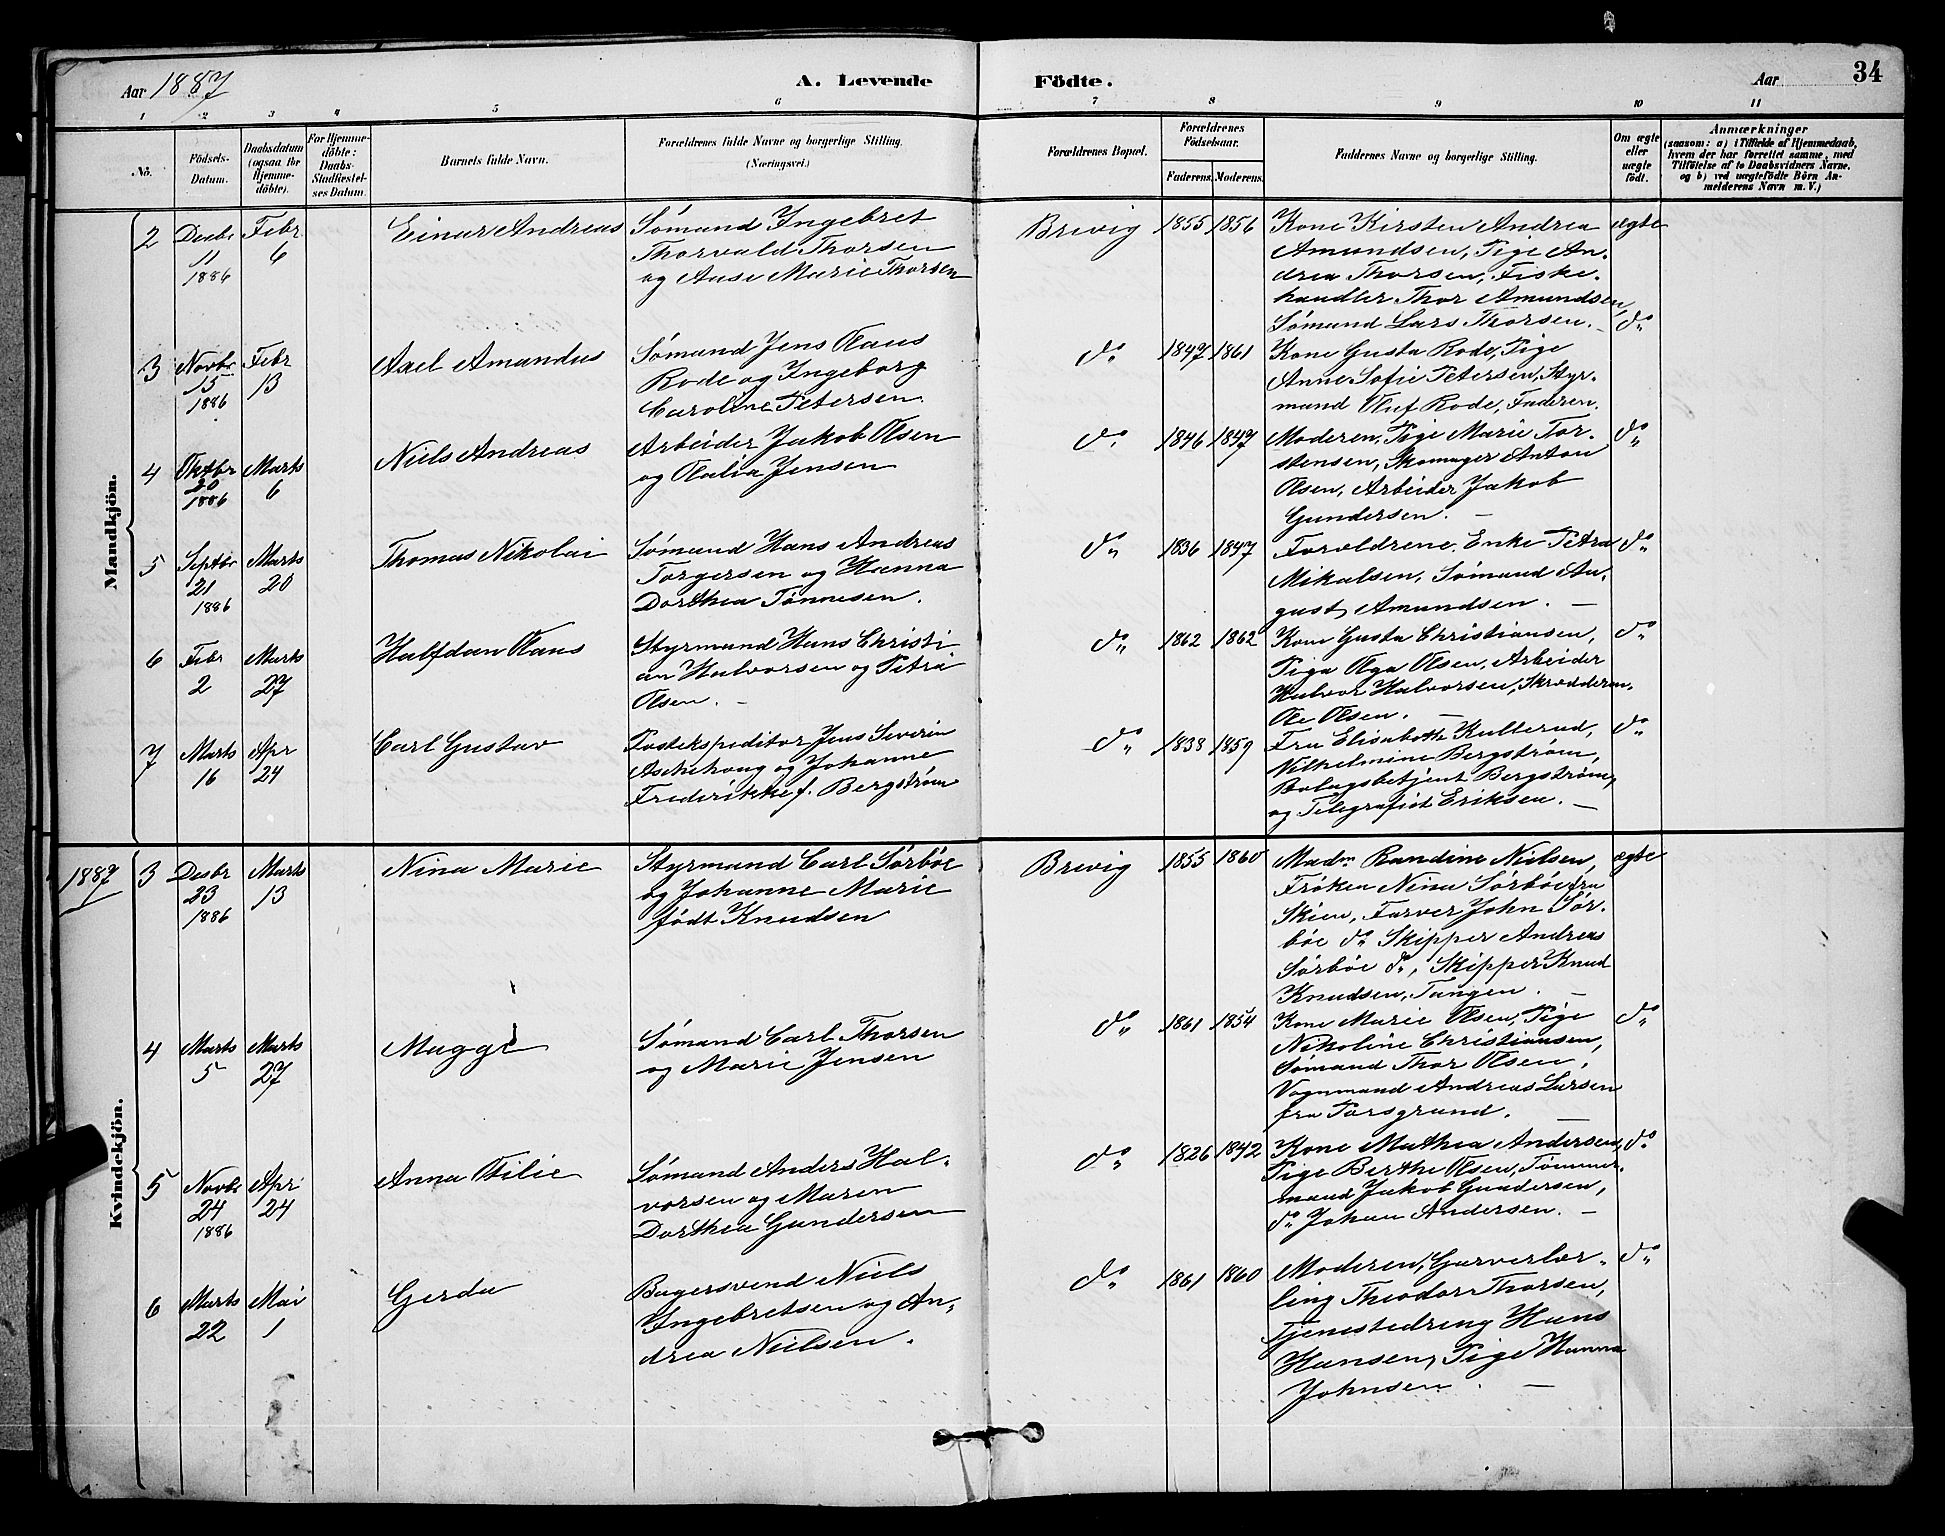 Aar 1887 A. Levende Födte. Aar 34
1 2 3 4 5 6 7 8 9 10 11
No. Födsels-Datum. Daabsdatum (ogsaa for Hjemme-döbte). For Hjemme-döbte: Daabs-Stadfæstel-ses Datum. Barnets fulde Navn. Forældrenes fulde Navne og borgerlige Stilling. (Næringsvei.) Forældrenes Bopæl. Forældrenes Födselsaar. Faderens. Moderens. Faddernes Navne og borgerlige Stilling. Om ægte eller uægte födt. Anmærkninger (saasom: a) i Tilfælde af Hjemmedaab, hvem der har forrettet samme, med Tilföielse af to Daabsvidners Navne, og b) ved uægtefödte Börn An-melderens Navn m. V.)
Mandkjön.
2 Decbr 11 1886 Febr 6 Einar Andreas Sømand Ingebret
Thorvald Thorsen
og Aase Marie Thorsen
Brevig 1855 1856 Kone Kirsten Andrea
Amundsen, Pige An-
drea Thorsen, Fiske-
handler Thor Amundsen,
Sømand Lars Thorsen. –
ægte
3 Novbr 15 1886 Febr 13 Axel Amandus Sømand Jens Olaus
Rode og Ingeborg
Caroline Petersen.
do 1847 1861 Kone Gusta Rode, Pige
Anne Sofie Petersen, Styr-
mand Oluf Rode, Faderen.
do
4 Oktbr 20 1886 Marts 6 Niels Andreas Arbeider Jakob Olsen
og Olalia Jensen
do 1846 1847 Moderen, Pige Marie Tor-
stensen, Skomager Anton
Olsen, Arbeider Jakob
Gundersen. –
do
5 Septbr 21 1886 Marts 20 Thomas Nikolai Sømand Hans Andreas
Torgersen og Hanna
Dorthea Tønnesen.
do 1836 1847 Forældrene, Enke Petra
Mikalsen, Sømand Au-
gust Amundsen. –
do
6 Febr 2 Marts 27 Halfdan Olaus Styrmand Hans Christi-
an Halvorsen og Petra
Olsen. –
do 1862 1862 Kone Gusta Christiansen,
Pige Olga Olsen, Arbeider
Halvor Halvorsen, Skrædderen
Ole Olsen. –
do
7 Marts 16 Apr 24 Carl Gustav Postekspeditor Jens Severin
Aschehoug og Johanne
Frederikke f. Bergstrøm
do 1838 1859 Fru Elisabeth Kullerud,
Vilhelmine Bergstrøm,
Bolagsbetjent Bergstrøm,
og Telegrafist Eriksen. –
do
1887
Kvindekjön.
3 Decbr 23 1886 Marts 13 Nina Marie Styrmand Carl Sørbøe
og Johanne Marie
født Knudsen
Brevig 1855 1860 Madm Randine Nielsen,
Frøken Nina Sørbøe fra
Skien, Farver John Sør-
bøe do Skipper Andreas
Sørbøe do, Skipper Knud
Knudsen, Tangen. –
ægte
4 Marts 5 Marts 27 Maggi Sømand Carl Thorsen
og Marie Jensen
do 1861 1854 Kone Marie Olsen, Pige
Nikoline Christiansen,
Sømand Thor Olsen,
Vognmand Andreas Larsen
fra Porsgrund. –
do
5 Novbr 24 1886 Apr 24 Anna Otilie Sømand Anders Hal-
vorsen og Maren
Dorthea Gundersen
do 1826 1842 Kone Mathea Andersen,
Pige Berthe Olsen, Tømmer-
mand Jakob Gundersen,
do Johan Andersen. –
do
6 Marts 22 Mai 1 Gerda Bagersvend Niels
Ingebretsen og An-
drea Nielsen.
do 1861 1860 Moderen, Garverlær-
ling Theodor Thorsen,
Tjenestedreng Hans
Hansen, Pige Hanna
Johnsen. –
do